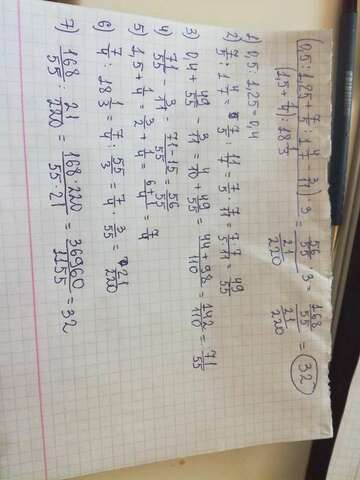 (0,5:1,25 7/5:1 4/7 3/11) 3 / (1,5+1/4):18 1/3 = 56/55 3 / 21/220 = 168/55 / 21/220 = 32
1. 0,5:1,25=0,4
2) 7/5:1 4/7=7/5:11/7=7/5·7/11=7·7/5·11=49/55
3) 0,4+49/55-3/11=4/10+49/55=44+98/110=142/110=71/55
4) 71/55-3/11=71-15/55=56/55
5) 1,5+1/4=3/2+1/4=6+1/4=7/4
6) 7/4:18 1/3=7/4:55/3=7/4·3/55=21/220
7) 168/55:21/220=168·220/55·21=36960/1155=32